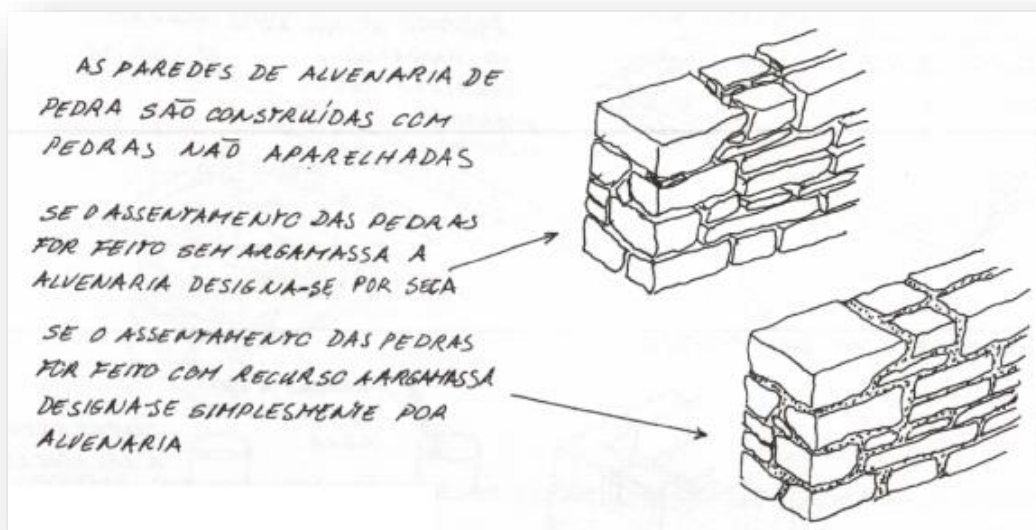 AS PAREDES DE ALVENARIA DE
PEDRA SÃO CONSTRUÍDAS COM
PEDRAS NÃO APARELHADAS
SE O ASSENTAMENTO DAS PEDRAS
FOR FEITO SEM ARGAMASSA A
ALVENARIA DESIGNA-SE POR SECA
SE O ASSENTAMENTO DAS PEDRAS
FOR FEITO COM RECURSO A ARGAMASSA
DESIGNA-SE SIMPLESMENTE POR
ALVENARIA